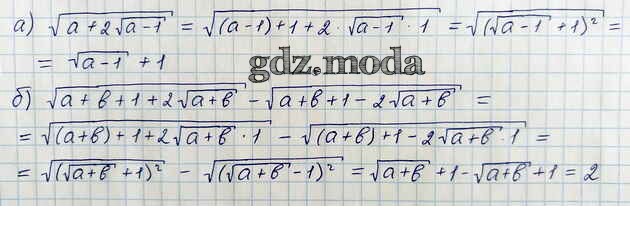 а) √(a + 2√(a-1)) = √((a-1) + 1 + 2 · √(a-1) · 1) = √((√(a-1) + 1)²) =
= √(a-1) + 1
gdz.moda
б) √(a + b + 1 + 2√(a+b)) - √(a+b+1 - 2√(a+b)) =
= √((a+b) + 1 + 2√(a+b) · 1) - √((a+b) + 1 - 2√(a+b) · 1) =
= √((√(a+b) + 1)²) - √((√(a+b) - 1)²) = √(a+b) + 1 - √(a+b) + 1 = 2